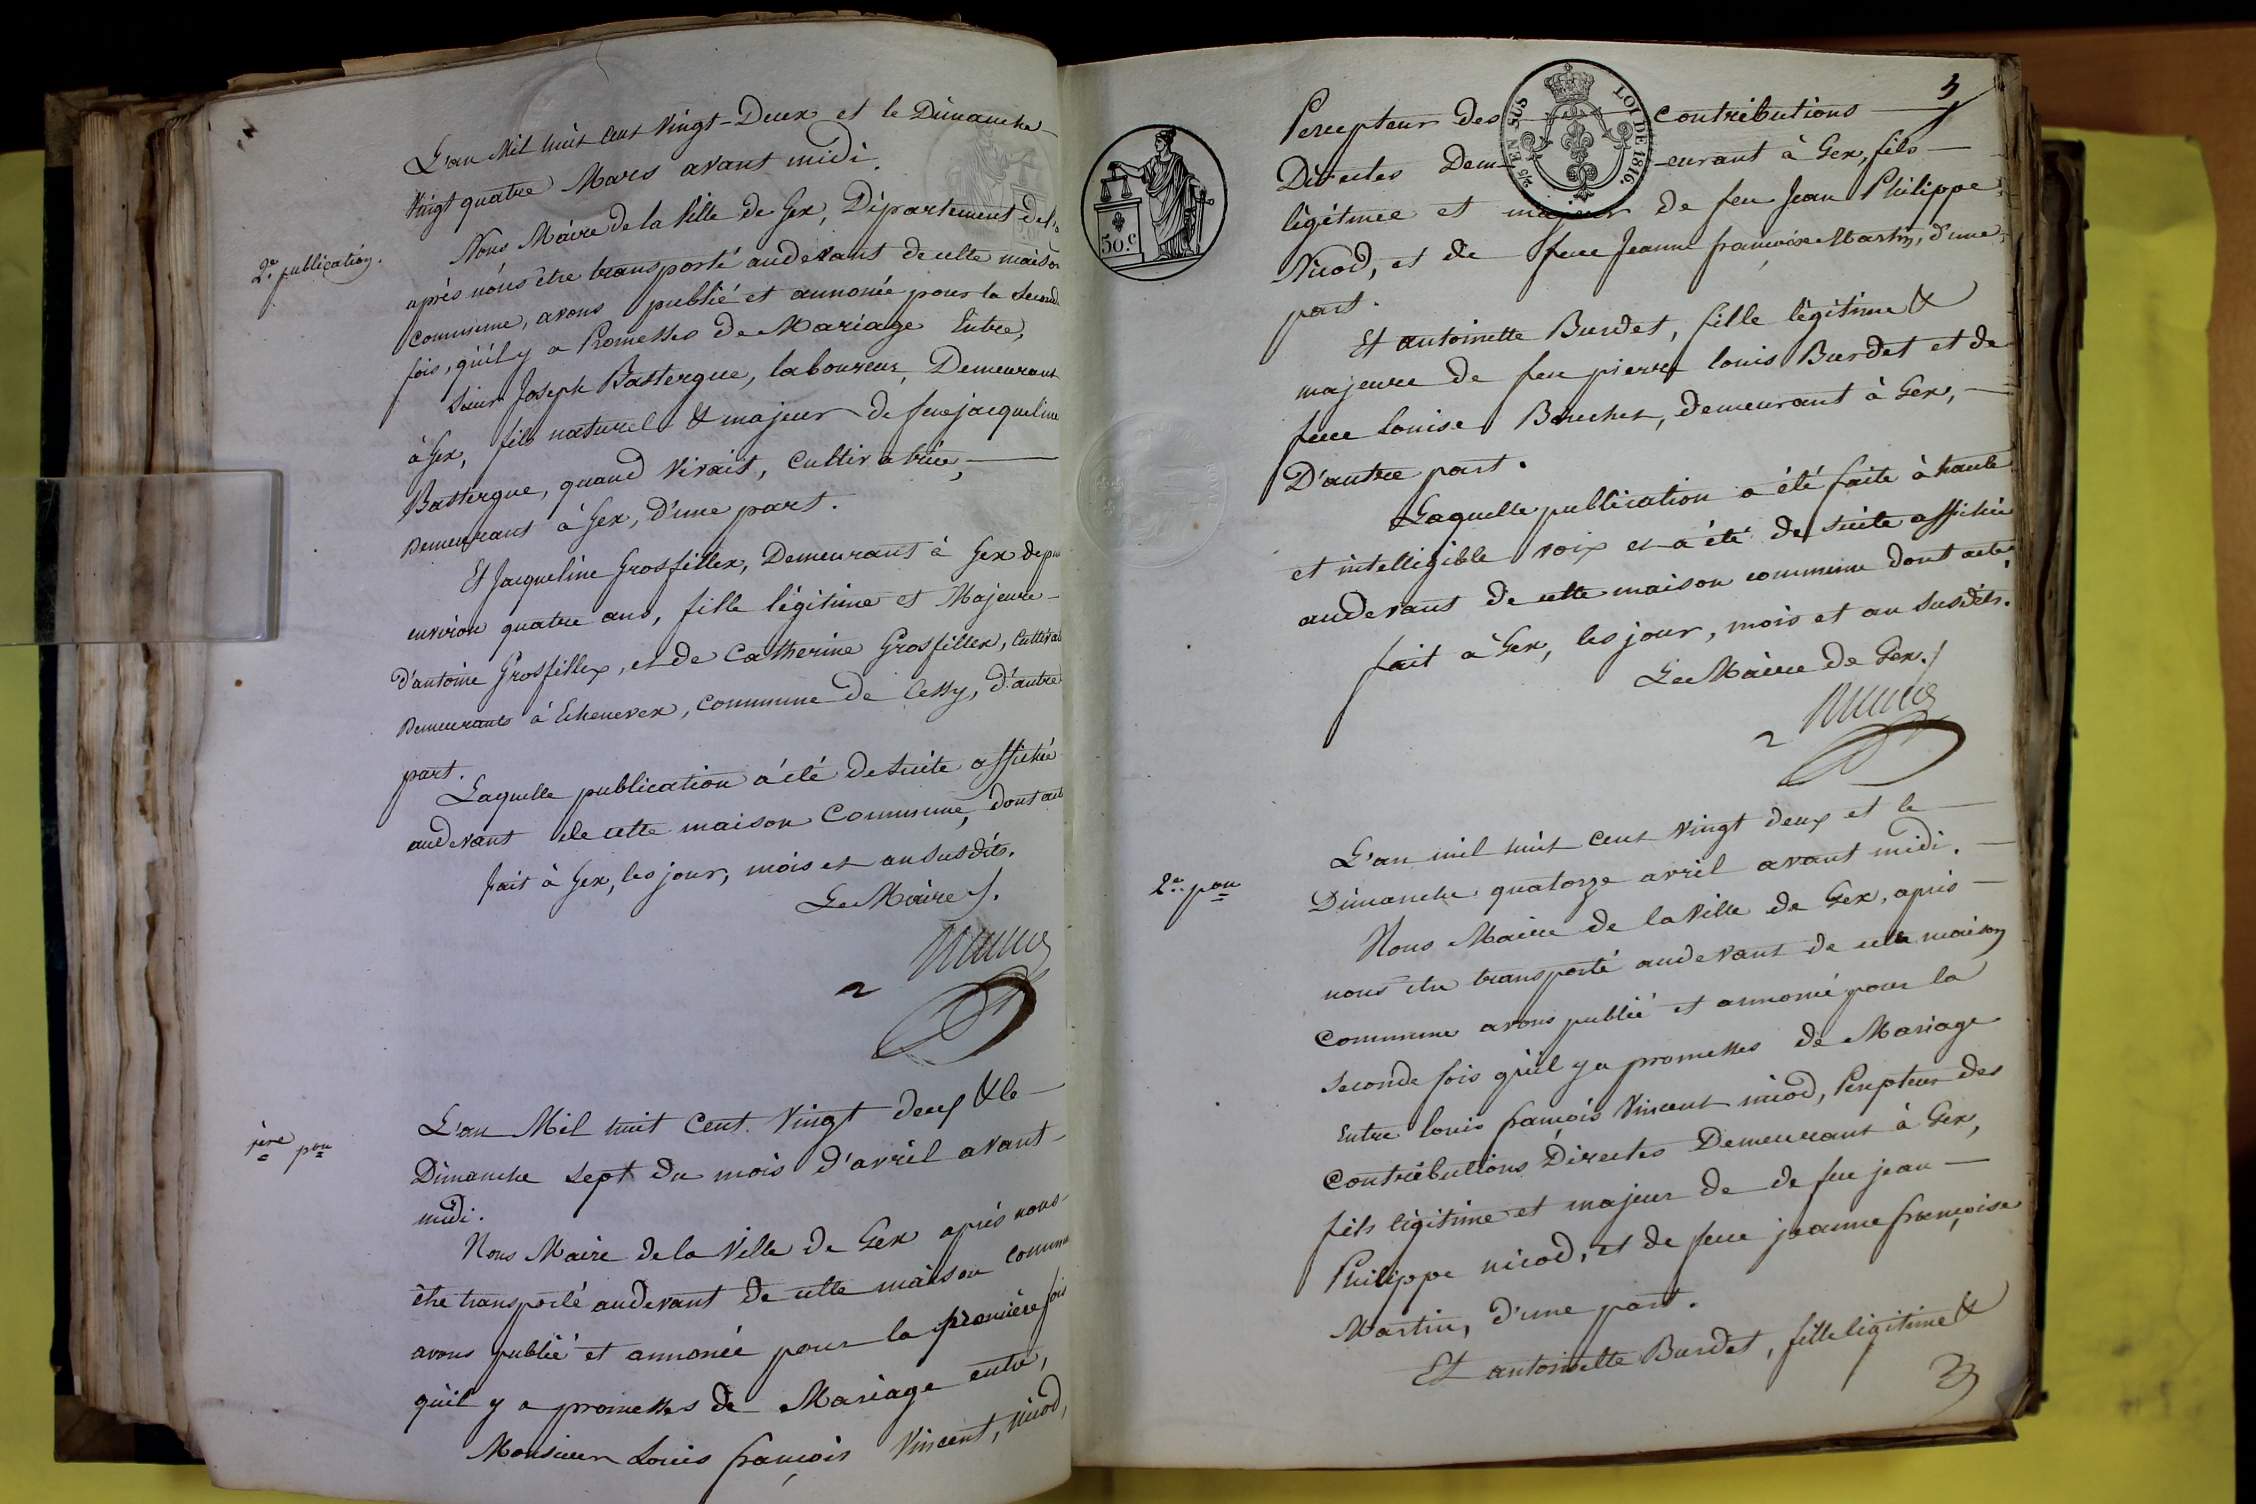 L'an Mil huit Cent Vingt-Deux et le Dimanche
Vingt quatre Mars avant midi.
2e. publication.
Nous Maire de la Ville de Gex, Département de l'a
après nous être transporté audevant de cette maison
commune, avons publié et annoncé pour la Seconde
fois, qu'il y a Promesses de Mariage Entre,
Sieur Joseph Bastergue, laboureur, Demeurant
à Gex, fils naturel & majeur de feue jacqueline
Bastergue, quand vivait, Cultivatrice,
Demeurant à Gex, d'une part.
Et Jacqueline Grosfillex, Demeurant à Gex depuis
environ quatre ans, fille légitime et Majeure
d'antoine Grosfillex, et de Catherine Grosfillex, Cultivat
Demeurants à Echenevex, Commune de Cessy, d'autre
part.
Laquelle publication a été de suite affichée
audevant de cette maison Commune, dont acte
fait à Gex, les jour, mois et an Susdits.
Le Maire /.
1ère pon
L'an Mil huit Cent Vingt deux & le
Dimanche Sept du mois d'avril avant
midi.
Nous Maire de la Ville de Gex après nous
être transporté audevant de cette maison commune
avons publié et annoncé pour la première fois
qu'il y a promesses de Mariage entre,
Monsieur Louis françois Vincent, Nicod,
50.c
5
EN SUS
LOI DE 1816.
Percepteur des Contributions
Directes Dem-eurant à Gex, fils
légitime et majeur de feu Jean Philippe
Nicod, et de feue Jeanne françoise Martin, d'une
part.
Et antoinette Burdet, fille légitime &
majeure de feu pierre louis Burdet et de
feue Louise Bouchet, demeurant à Gex,
D'autre part.
Laquelle publication a été faite à haute
et intelligible voix et a été de suite affichée
audevant de cette maison commune dont acte,
fait à Gex, les jour, mois et an susdits.
Le Maire de Gex./
2e. pon
L'an mil huit cent vingt deux et le
Dimanche quatorze avril avant midi.
Nous Maire de la Ville de Gex, après
nous être transporté audevant de cette maison
Commune avons publié et annoncé pour la
Seconde fois qu'il y a promesses de Mariage
Entre louis françois Vincent nicod, Percepteur des
Contributions Directes Demeurant à Gex,
fils légitime et majeur de de feu jean
Philippe nicod, et de feue jeanne françoise
Martin, d'une part.
Et antoinette Burdet, fille légitime &